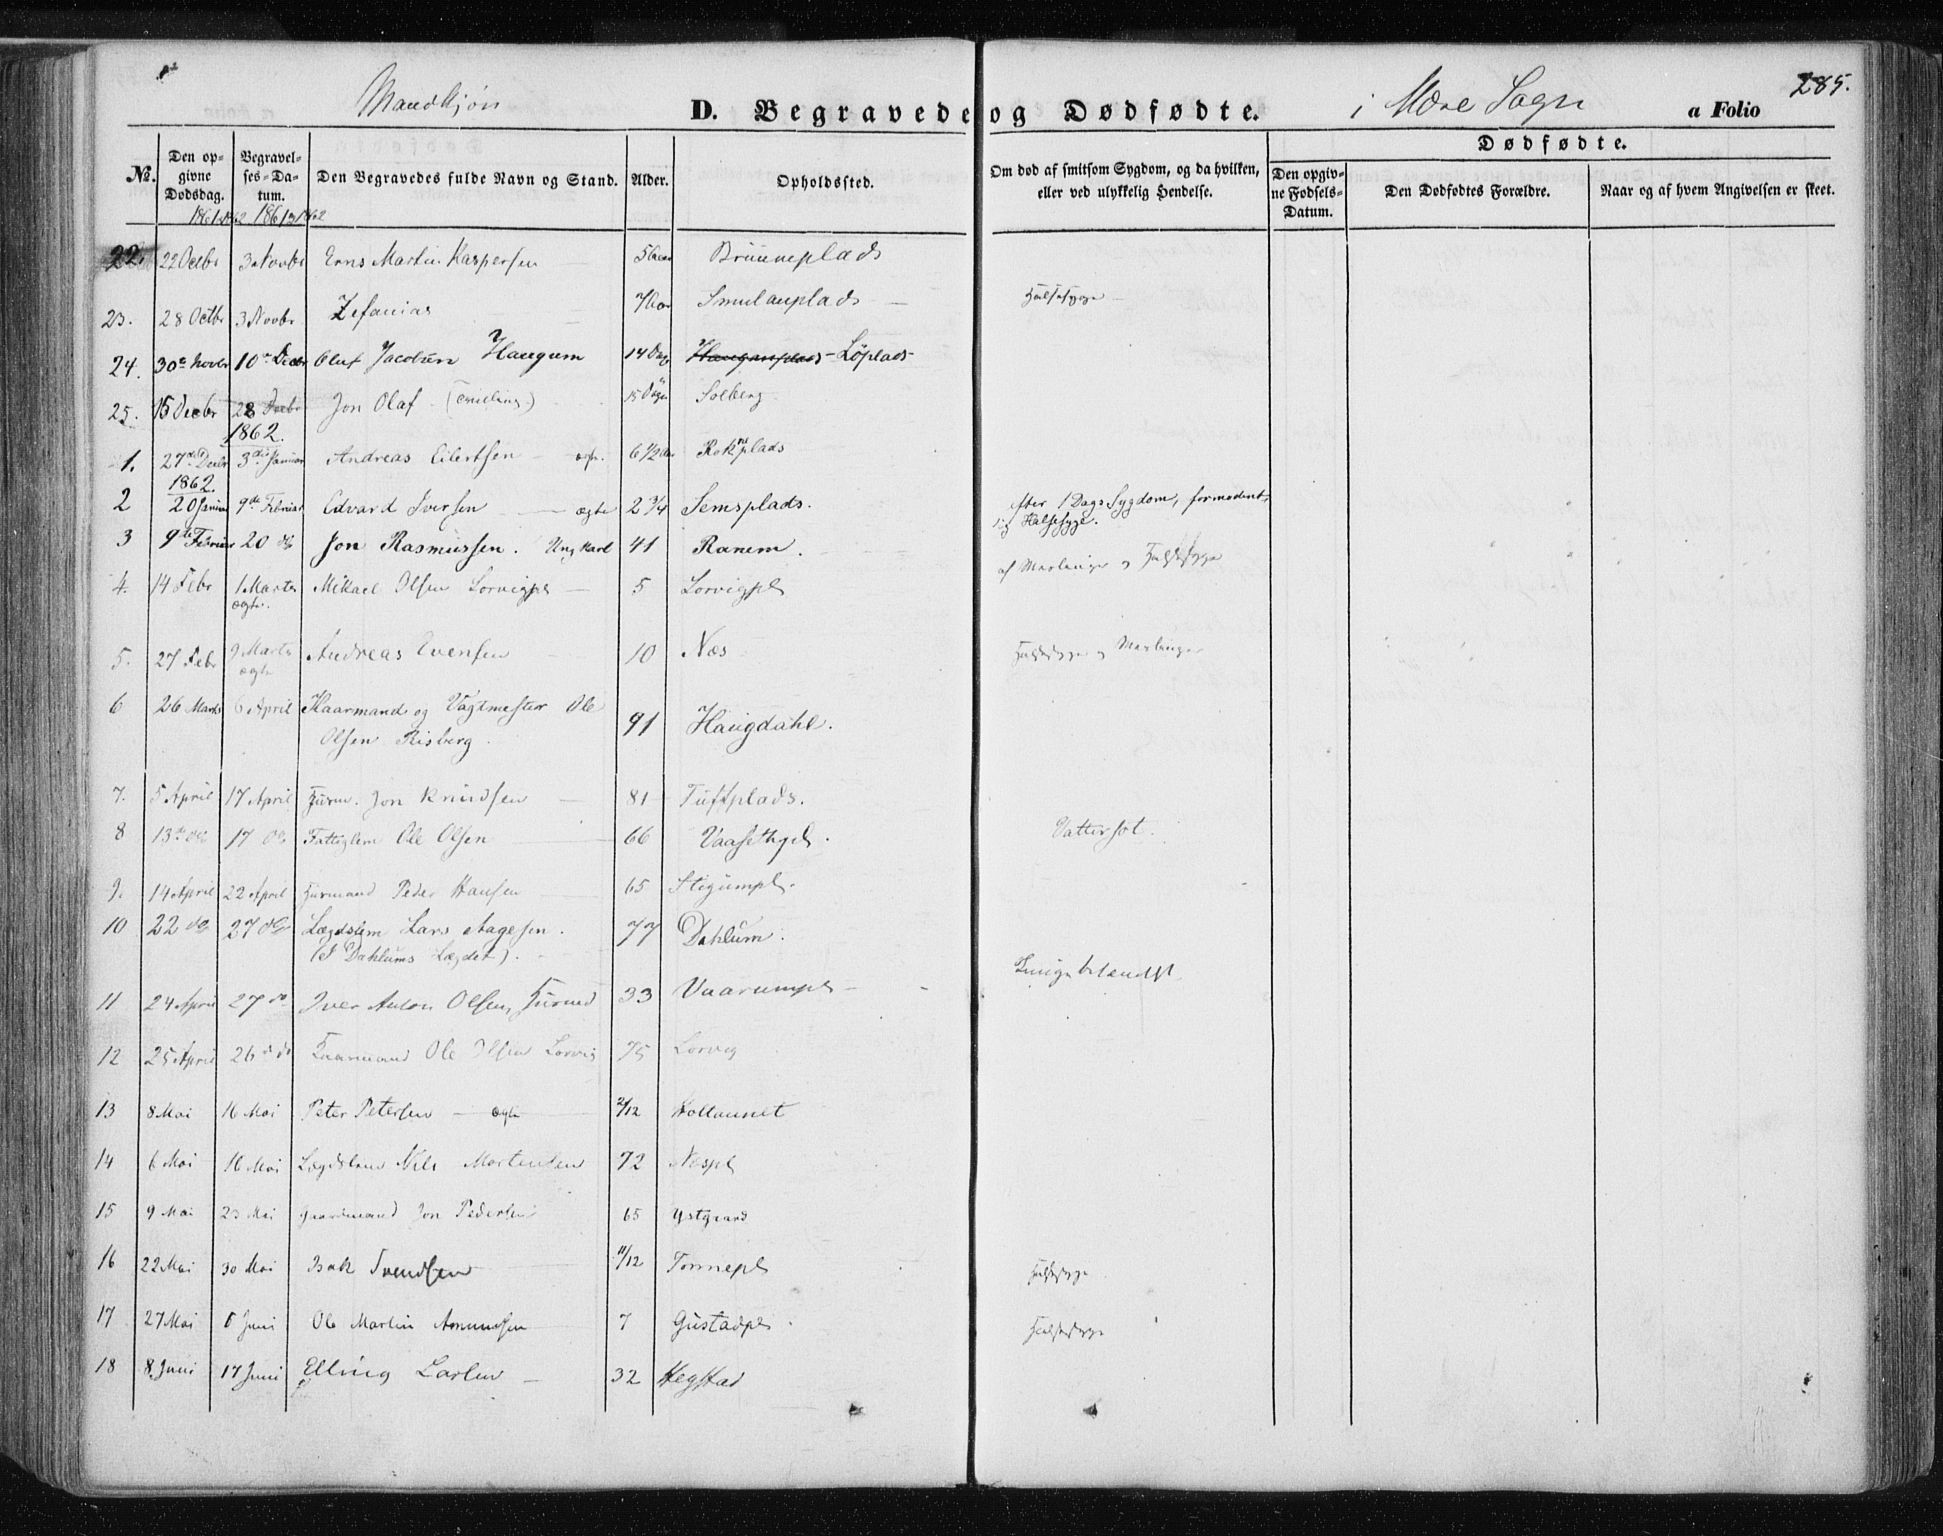 Mandkjøn D. Begravede og Dødfødte. i Mære Sogn a Folio 285.
Dødfødte.
No. Den opgivne Dødsdag. Begravelses-Datum. Den Begravedes fulde Navn og Stand. Alder. Opholdssted. Om død af smitsom Sygdom, og da hvilken, eller ved ulykkelig Hendelse. Den opgivne Fødsels-Datum. Den Dødfødtes Forældre. Naar og af hvem Angivelsen er skeet.
1861 & 1862 1861 & 1862
22. 22 Octbr 3 Novbr Erns Martin Kaspersen 5 Brünneplads
23. 28 Octbr 3 Novbr Zefanias 7 Smulanplads Halssyge
24. 30te Novbr 10de Decbr Oluf Jacobsen Haugum 14 Dage Hauganplads Löplads
25. 15 Decbr 28 Decbr Jon Olaf (Tvilling) 15 Dage Solberg
1862.
1. 27de Decbr 3die Januar Andreas Eilertsen ægte 6 1/2 Rokneplads
1862.
2 20 Januar 9de Februar Edvard Iversen ægte 2 3/4 Semsplads. efter 1 Dags Sygdom, formodent-
lig Halssyge.
3 9de Februar 20 do Jon Rasmussen. Ungkarl 41 Ranem.
4. 14 Febr 1 Marts Mikael Olsen Lorvigpl 5 Lorvigpl af Maslinger og Halssyge
ægte.
5. 27 Febr 9 Marts Andreas Evensen 10 Næs Halssyge og Maslinger
ægte
6 26 Marts 6 April Kaarmand og Vagtmester Ole 91 Haugdahl.
Olsen Risberg.
7. 5 April 17 April Huusm. Jon Knudsen 81 Tuftplads.
8 13de do 17 do Fattiglem Ole Olsen 66 Vaasethpl. Vattersot.
9. 14 April 22 April Huusmand Peder Hansen 65 Stigumpl.
10 22 do 27 do Lægdslem Lars Aagesen. 77 Dahlum.
(I Dahlums Lægdet).
11 24 April 27 do Iver Anton Olsen, Huusmd 33 Vaarumpl Lungebetændst
12 25 April 26 do Kaarmand Ole Olsen Lorvig 75 Lorvig
13 8 Mai 16 Mai Peter Petersen ægte 2/12 Holtaunet
14 6 Mai 16 Mai Lægdslem Nils Mortensen 72 Næspl
15 9 Mai 23 Mai Gaardmand Jon Pedersen 65 Ystgaard
16 22 Mai 30 Mai Isak Svendsen 11/12 Tonnepl Halssyge
17 27 Mai Juni Ole Martin Amundsen 7 Gustadpl. Halssyge
18 8 Juni 17 Juni Elling Larsen 32 Hegstad